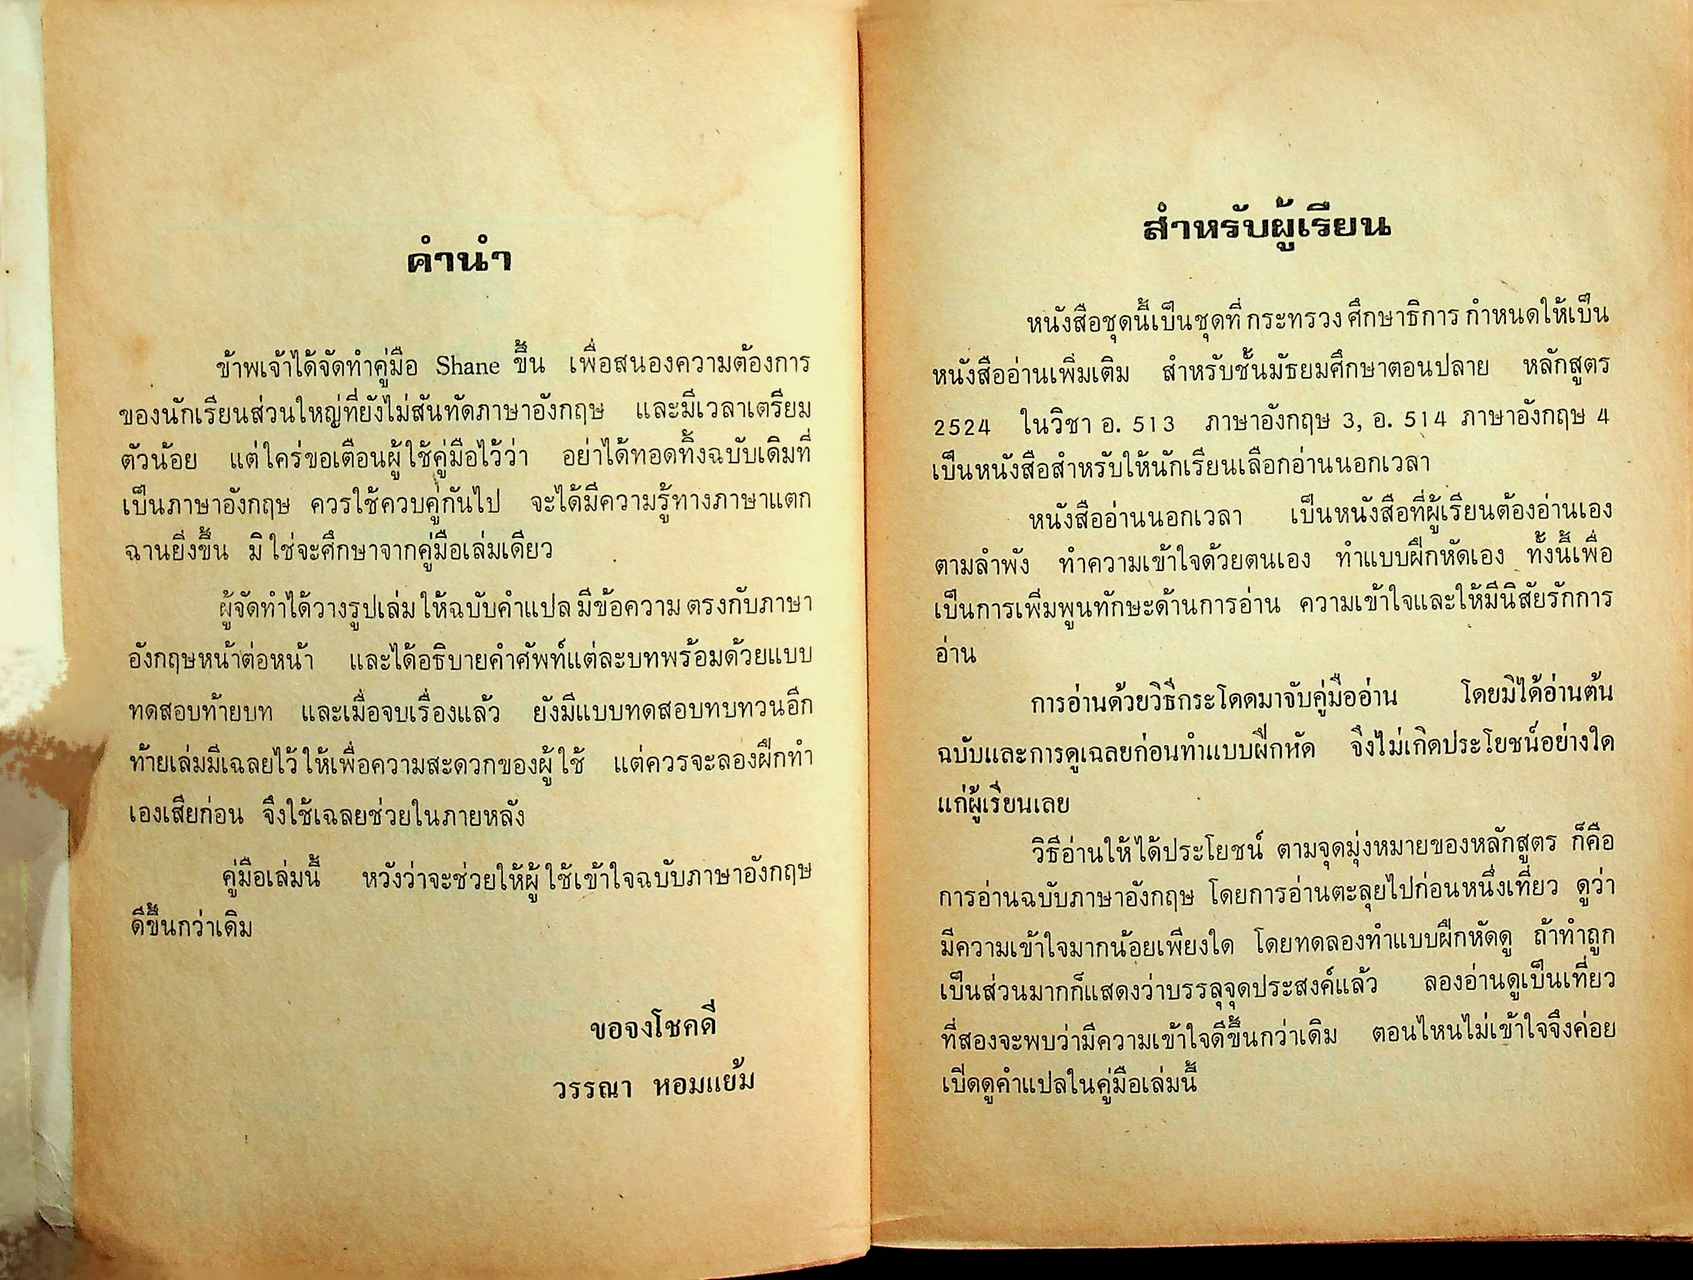 คำนำ
ข้าพเจ้าได้จัดทำคู่มือ Shane ขึ้น เพื่อสนองความต้องการ
ของนักเรียนส่วนใหญ่ที่ยังไม่สันทัดภาษาอังกฤษ และมีเวลาเตรียม
ตัวน้อย แต่ใคร่ขอเตือนผู้ใช้คู่มือไว้ว่า อย่าได้ทอดทิ้งฉบับเดิมที่
เป็นภาษาอังกฤษ ควรใช้ควบคู่กันไป จะได้มีความรู้ทางภาษาแตก
ฉานยิ่งขึ้น มิใช่จะศึกษาจากคู่มือเล่มเดียว
ผู้จัดทำได้วางรูปเล่มให้ฉบับคำแปลมีข้อความตรงกับภาษา
อังกฤษหน้าต่อหน้า และได้อธิบายคำศัพท์แต่ละบทพร้อมด้วยแบบ
ทดสอบท้ายบท และเมื่อจบเรื่องแล้ว ยังมีแบบทดสอบทบทวนอีก
ท้ายเล่มมีเฉลยไว้ให้เพื่อความสะดวกของผู้ใช้ แต่ควรจะลองฝึกทำ
เองเสียก่อน จึงใช้เฉลยช่วยในภายหลัง
คู่มือเล่มนี้ หวังว่าจะช่วยให้ผู้ใช้เข้าใจฉบับภาษาอังกฤษ
ดีขึ้นกว่าเดิม
ขอจงโชคดี
วรรณา หอมแย้ม
สำหรับผู้เรียน
หนังสือชุดนี้เป็นชุดที่กระทรวงศึกษาธิการกำหนดให้เป็น
หนังสืออ่านเพิ่มเติม สำหรับชั้นมัธยมศึกษาตอนปลาย หลักสูตร
2524 ในวิชา อ. 513 ภาษาอังกฤษ 3, อ. 514 ภาษาอังกฤษ 4
เป็นหนังสือสำหรับให้นักเรียนเลือกอ่านนอกเวลา
หนังสืออ่านนอกเวลา เป็นหนังสือที่ผู้เรียนต้องอ่านเอง
ตามลำพัง ทำความเข้าใจด้วยตนเอง ทำแบบฝึกหัดเอง ทั้งนี้เพื่อ
เป็นการเพิ่มพูนทักษะด้านการอ่าน ความเข้าใจและให้มีนิสัยรักการ
อ่าน
การอ่านด้วยวิธีกระโดดมาจับคู่มืออ่าน โดยมิได้อ่านต้น
ฉบับและการดูเฉลยก่อนทำแบบฝึกหัด จึงไม่เกิดประโยชน์อย่างใด
แก่ผู้เรียนเลย
วิธีอ่านให้ได้ประโยชน์ ตามจุดมุ่งหมายของหลักสูตร ก็คือ
การอ่านฉบับภาษาอังกฤษ โดยการอ่านตะลุยไปก่อนหนึ่งเที่ยว ดูว่า
มีความเข้าใจมากน้อยเพียงใด โดยทดลองทำแบบฝึกหัดดู ถ้าทำถูก
เป็นส่วนมากก็แสดงว่าบรรลุจุดประสงค์แล้ว ลองอ่านดูเป็นเที่ยว
ที่สองจะพบว่ามีความเข้าใจดีขึ้นกว่าเดิม ตอนไหนไม่เข้าใจจึงค่อย
เปิดดูคำแปลในคู่มือเล่มนี้